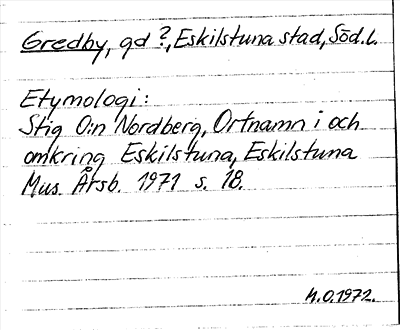 Gredby, gd?, Eskilstuna stad, Söd.l.
Etymologi:
Stig O:n Nordberg, Ortnamn i och
omkring Eskilstuna, Eskilstuna
Mus. Årsb. 1971 s. 18.
M.O.1972.